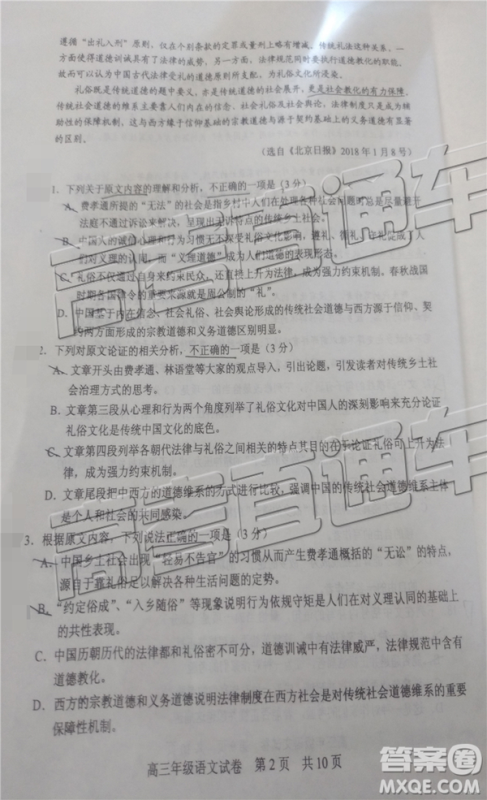 遵循“出礼入刑”原则，仅在个别条款的定罪或量刑上略有增减。传统礼法这种关系，一
方面使道德训诫具有了法律的威势，另一方面，法律规范同时要扶持道德教化的职能。
故可以认为中国古代法律受礼的道德原则所支配，为礼俗文化所浸染。
礼俗既是传统道德的题中要义，亦是传统道德的社会展开，更是社会教化的有力保障。
传统社会道德的维系主要表现为个体内在的信念、社会礼俗及社会舆论以及法律制度对
辅助性的保障机制，这与西方缘于信仰基础的宗教道德与源于契约基础上的义务道德有显著
的区别。
（选自《北京日报》2018年1月8号）
1. 下列关于原文内容的理解和分析，不正确的一项是（3分）
A. 费孝通所提的“无法”的社会是指乡村中人们在处理各种社会问题时总是尽量避于
法庭不通过诉讼来解决，呈现
B. 中国人的诚信心理和行为习惯无不深受礼俗文化影响，遵礼、
人们的认同，而“义理道德”成为人们道德的表现形态。
C. 礼俗不仅通过自身来约束人民，还直接上升为法律，成为强力约束机制，春秋战国
时期各国律令的重要来源就是周公制的“礼”。
D. 中国基于内在信念、社会礼俗、社会舆论形成的传统社会道德与西方源于信仰、契
约两方面形成的宗教道德和义务道德区别明显。
2. 下列对原文论证的相关分析，不正确的一项是（3分）
A. 文章开头由费孝通、林语堂等大家的观点导入，引出论题，引发读者对传统乡土社
会治理方式的思考。
B. 文章第三段从心理和行为两个角度列举了礼俗文化对中国人的深刻影响来充分论证
礼俗文化是传统中国文化的底色。
C. 文章第四段列举各朝代法律与礼俗之间相关的特点其目的在于论证礼俗可上升为法
律，成为强力约束机制。
D. 文章尾段把中西方的道德维系的方式进行比较，强调了中国传统社会的道德维系主体
是个人和社会的共同感染。
3. 根据原文内容，下列说法正确的一项是（3分）
A. 中国乡土社会有“轻易不告官”的习惯从而产生费孝通概括的“无讼”的特点，
源自于靠礼俗足以解决各种生活问题的定势。
B. “约定俗成”、“入乡随俗”等现象说明行为依规守矩是人们在对义理认同的基础上
的共性表现。
C. 中国历朝历代的法律都和礼俗密不可分，道德训诫中有法律威严，法律规范中含有
道德教化。
D. 西方的宗教道德和义务道德说明法律制度在西方社会是对传统社会道德维系的重要
保障性机制。
高三年级语文试卷 第2页 共10页
高考直通车
高考直通车
答案圈
MXQE.COM